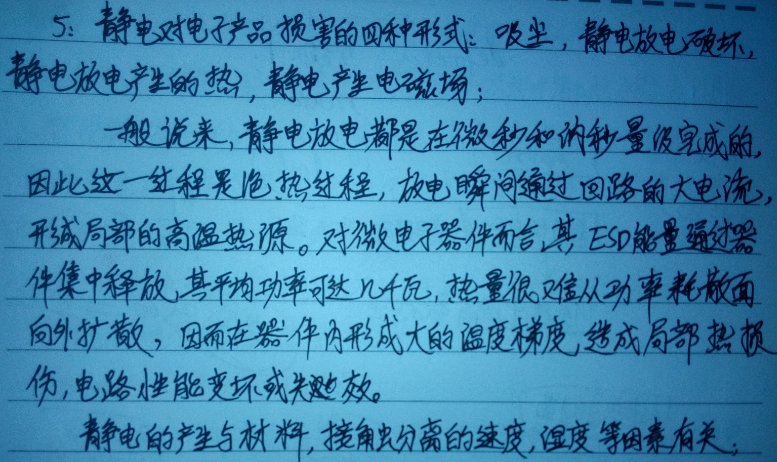 5: 静电对电子产品损害的四种形式: 吸尘, 静电放电破坏,
静电放电产生的热, 静电产生电磁场;
一般说来, 静电放电都是在微秒和纳秒量级完成的,
因此这一过程是绝热过程, 放电瞬间通过回路的大电流,
形成局部的高温热源。对微电子器件而言,其ESD能量通过器
件集中释放,其平均功率可达几千瓦, 热量很难从功率耗散面
向外扩散, 因而在器件内形成大的温度梯度,造成局部热损
伤,电路性能变坏或失效。
静电的产生与材料,接触分离的速度,湿度等因素有关;